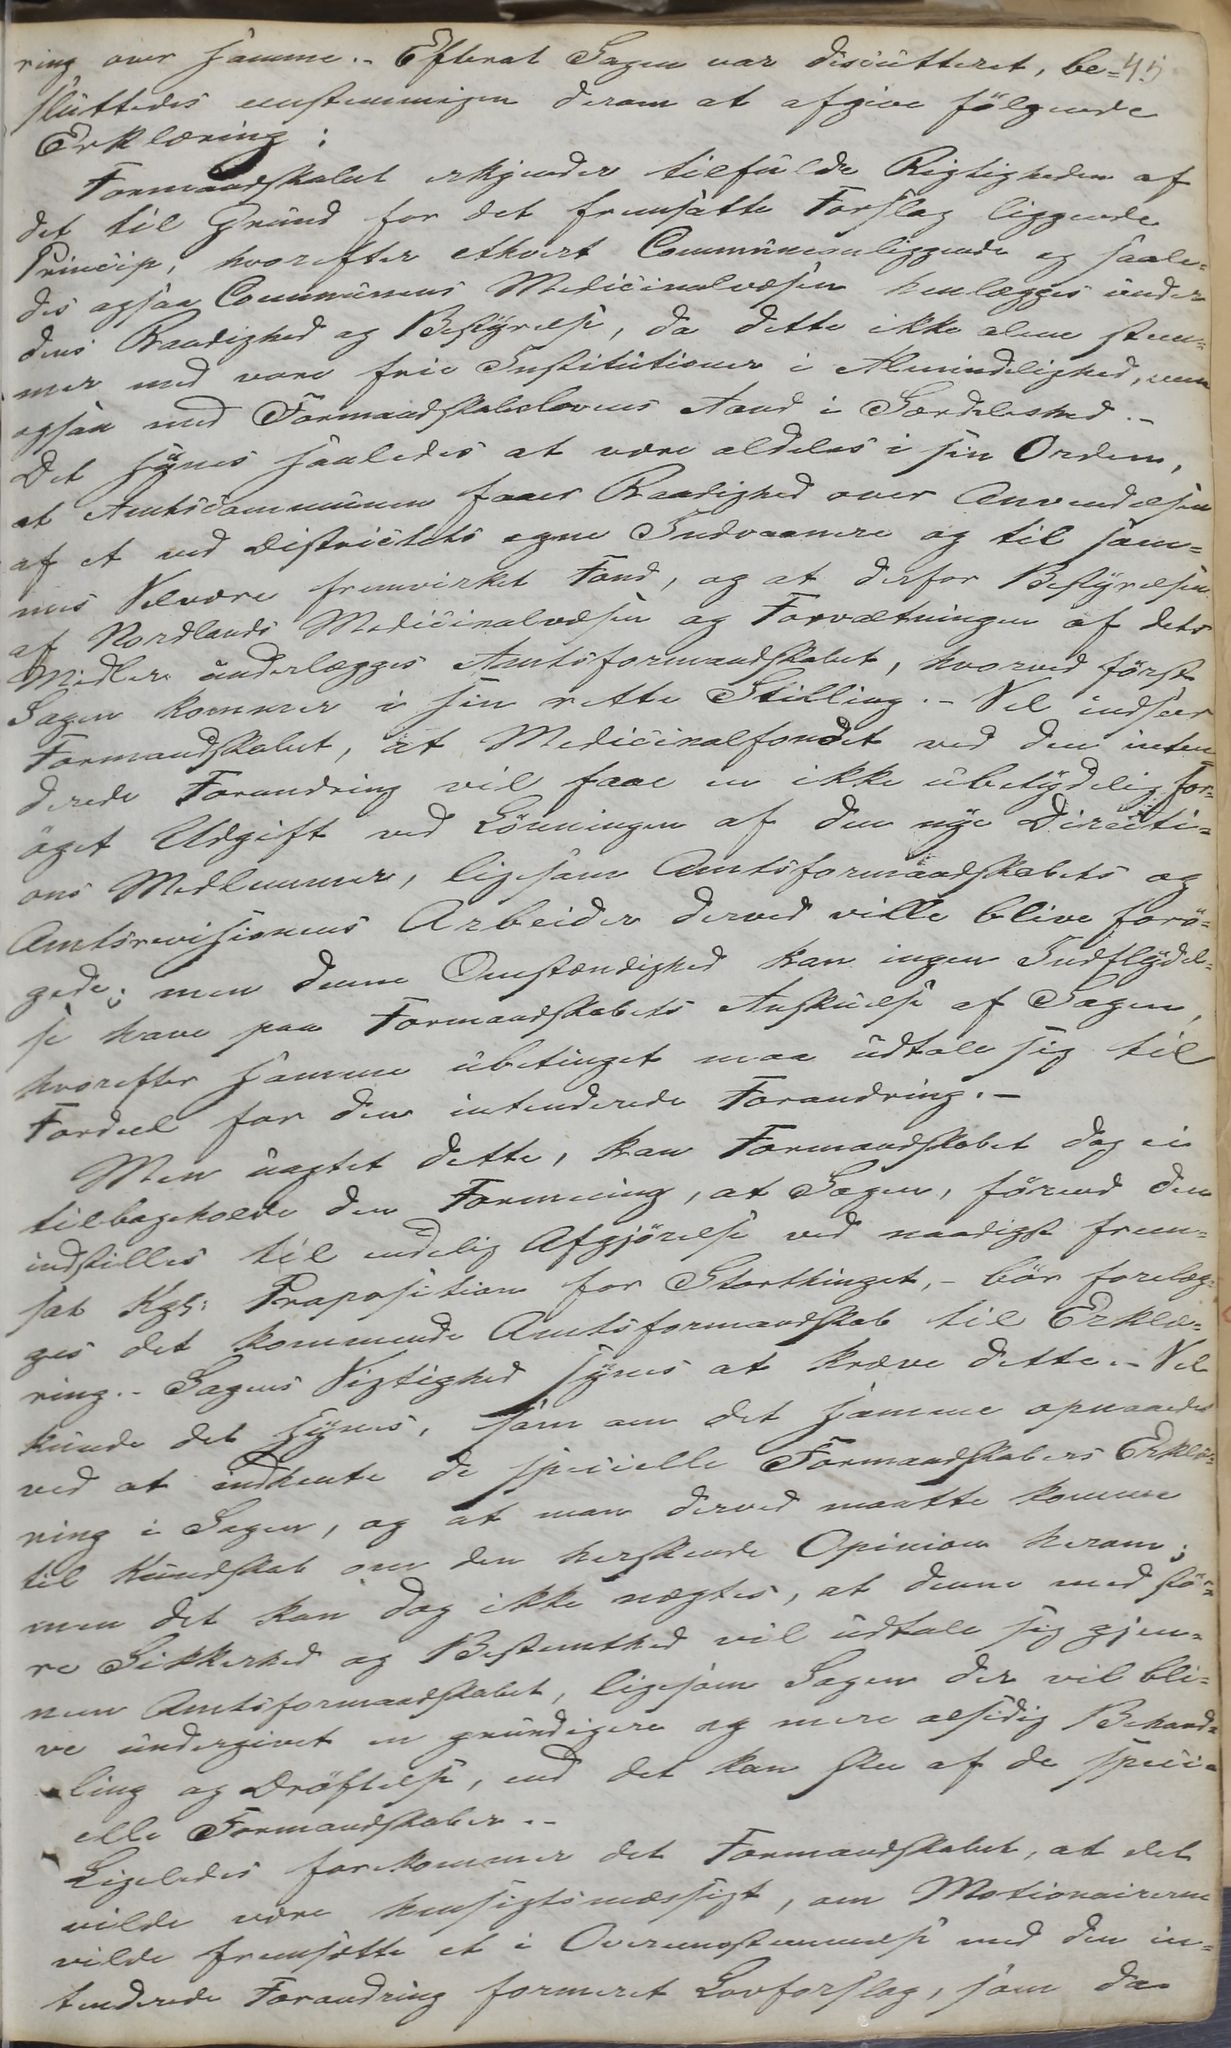 ring over samme.- Efterat Sagen var discuteret, be= 45
sluttedes eenstemmigen derom at afgive følgende
Erklæring:
Formandskabet erkjender tilfulde Rigtigheden af
det til Grund for det fremsatte Forslag liggende
Princip, hvorefter ethvert Communeanliggende og saale-
des ogsaa Communens Medicinalvæsen henlægges under
dens Raadighed og Bestyrelse, da dette ikke alene stem-
mer med vore frie Institutioner i Almindelighed, men
ogsaa med Formandskabslovens Aand i Særdeleshed.-
Det synes saaledes at være aldeles i sin Orden,
at Amtscommunen faaer Raadighed over Anvendelsen
af et ved Districtets egne Indvaanere og til sam-
mes Velvære fremvirket Fond, og at derfor Bestyrelsen
af Nordlands Medicinalvæsen og Forvaltningen af dets
Midler underlægges Amtsformandskabet, hvorved først
Sagen kommer i sin rette Stilling.- Vel indseer
Formandskabet, at Medicinalfondet ved den inten-
derede Forandring vil faae en ikke ubetydelig for-
øget Udgift ved Lønningen af den nye Directi-
ons Medlemmer, ligesom Amtsformandskabets og
Amtsrevisionens Arbeider derved ville blive forø-
gede; men denne Omstændighed kan ingen Indflydel-
se have paa Formandskabets Anskuelse af Sagen,
hvorefter samme ubetinget maa udtale sig til
Fordeel for den intenderede Forandring.-
Men uagtet dette, kan Formandskabet dog ei
tilbageholde den Formening, at Sagen, førend den
indstilles til endelig Afgjørelse ved naadigst frem-
sat Kgl: Proposition for Storthinget,- bør forelæg-
ges det kommende Amtsformandskab til Erklæ-
ring.- Sagens Vigtighed synes at kræve dette.- Vel
kunde det synes, som om det samme opnaaedes
ved at indhente de specielle Formandskabers Erklæ-
ring i Sagen, og at man derved maatte komme
til Kundskab om den herskende Opinion herom;
men det kan dog ikke nægtes, at denne med stø-
re Sikkerhed og Bestemthed vil udtale sig gjen-
nem Amtsformandskabet, ligesom Sagen der vil bli-
ve undergivet en grundigere og mere alsidig Behand-
ling og Drøftelse, end det kan skee af de speci-
elle Formandskaber.-
Ligeledes forekommer det Formandskabet, at det
vilde være hensigtsmæssigt, om Motionairerne
vilde fremsætte et i Overeensstemmelse med den in-
tenderede Forandring formeret Lovforslag, som da